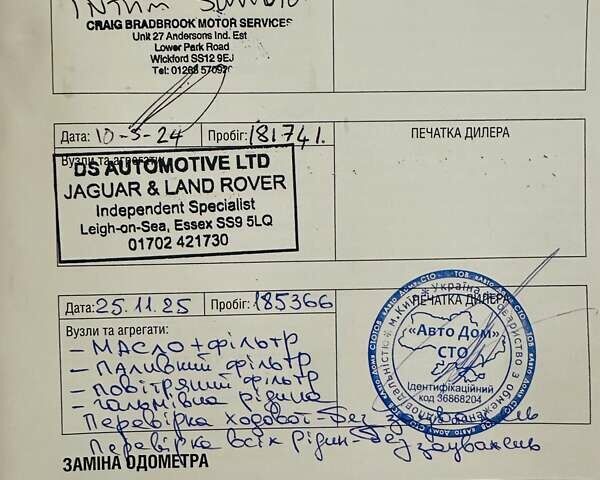 CRAIG BRADBROOK MOTOR SERVICES
Unit 27 Andersons Ind. Est
Lower Park Road
Wickford SS12 9EJ
Tel: 01268 570920
Дата: 10-5-24 Пробіг: 181741.
ПЕЧАТКА ДИЛЕРА
Вузли та агрегати:
DS AUTOMOTIVE LTD
JAGUAR & LAND ROVER
Independent Specialist
Leigh-on-Sea, Essex SS9 5LQ
01702 421730
Дата: 25.11.25 Пробіг: 185366
ПЕЧАТКА ДИЛЕРА
Вузли та агрегати:
- МАСЛО + фільтр
- ПАЛИВНИЙ фільтр
- ПОВІТРЯНИЙ фільтр
- гальмівна рідина
Перевірка ходової - без
Перевірка всіх рідин - без зауважень
«Авто Дом»
СТО
Ідентифікаційний
код 36868204
ЗАМІНА ОДОМЕТРА